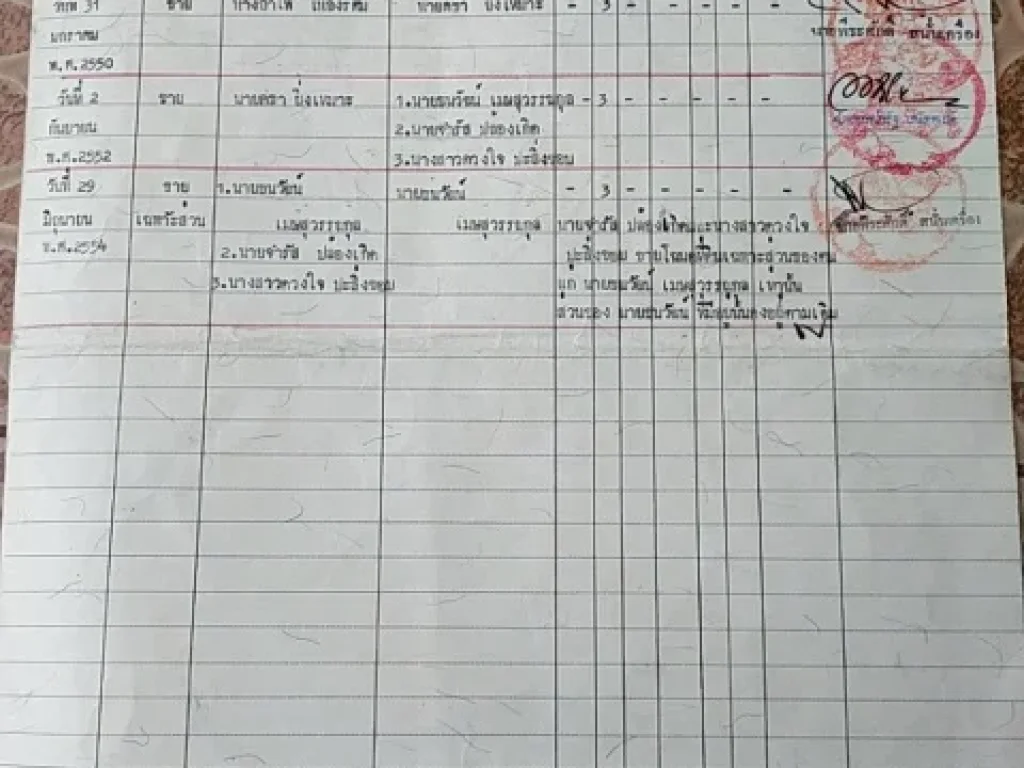 วันที่ 31 ขาย - 3 - - - - -
มกราคม
พ.ศ.2550
วันที่ 2 ขาย นายศรา ยิ่งเหมาะ 1.นายธนวัฒน์ เมฆสุวรรณกุล - 3 - - - - -
กันยายน 2.นายจำรัส ปล้องเกิด
พ.ศ.2552 3.นางสาวดวงใจ
วันที่ 29 ขาย 1.นายธนวัฒน์ นายธนวัฒน์ - 3 - - - - -
มิถุนายน เฉพาะส่วน เมฆสุวรรณกุล เมฆสุวรรณกุล นายจำรัส ปล้องเกิดและนางสาวดวงใจ
พ.ศ.2554 2.นายจำรัส ปล้องเกิด ขายโฉนดที่ดินเฉพาะส่วนของตน
3.นางสาวดวงใจ แก่ นายธนวัฒน์ เมฆสุวรรณกุล เท่านั้น
ส่วนของ นายธนวัฒน์ ที่มีอยู่นั้นคงอยู่ตามเดิม